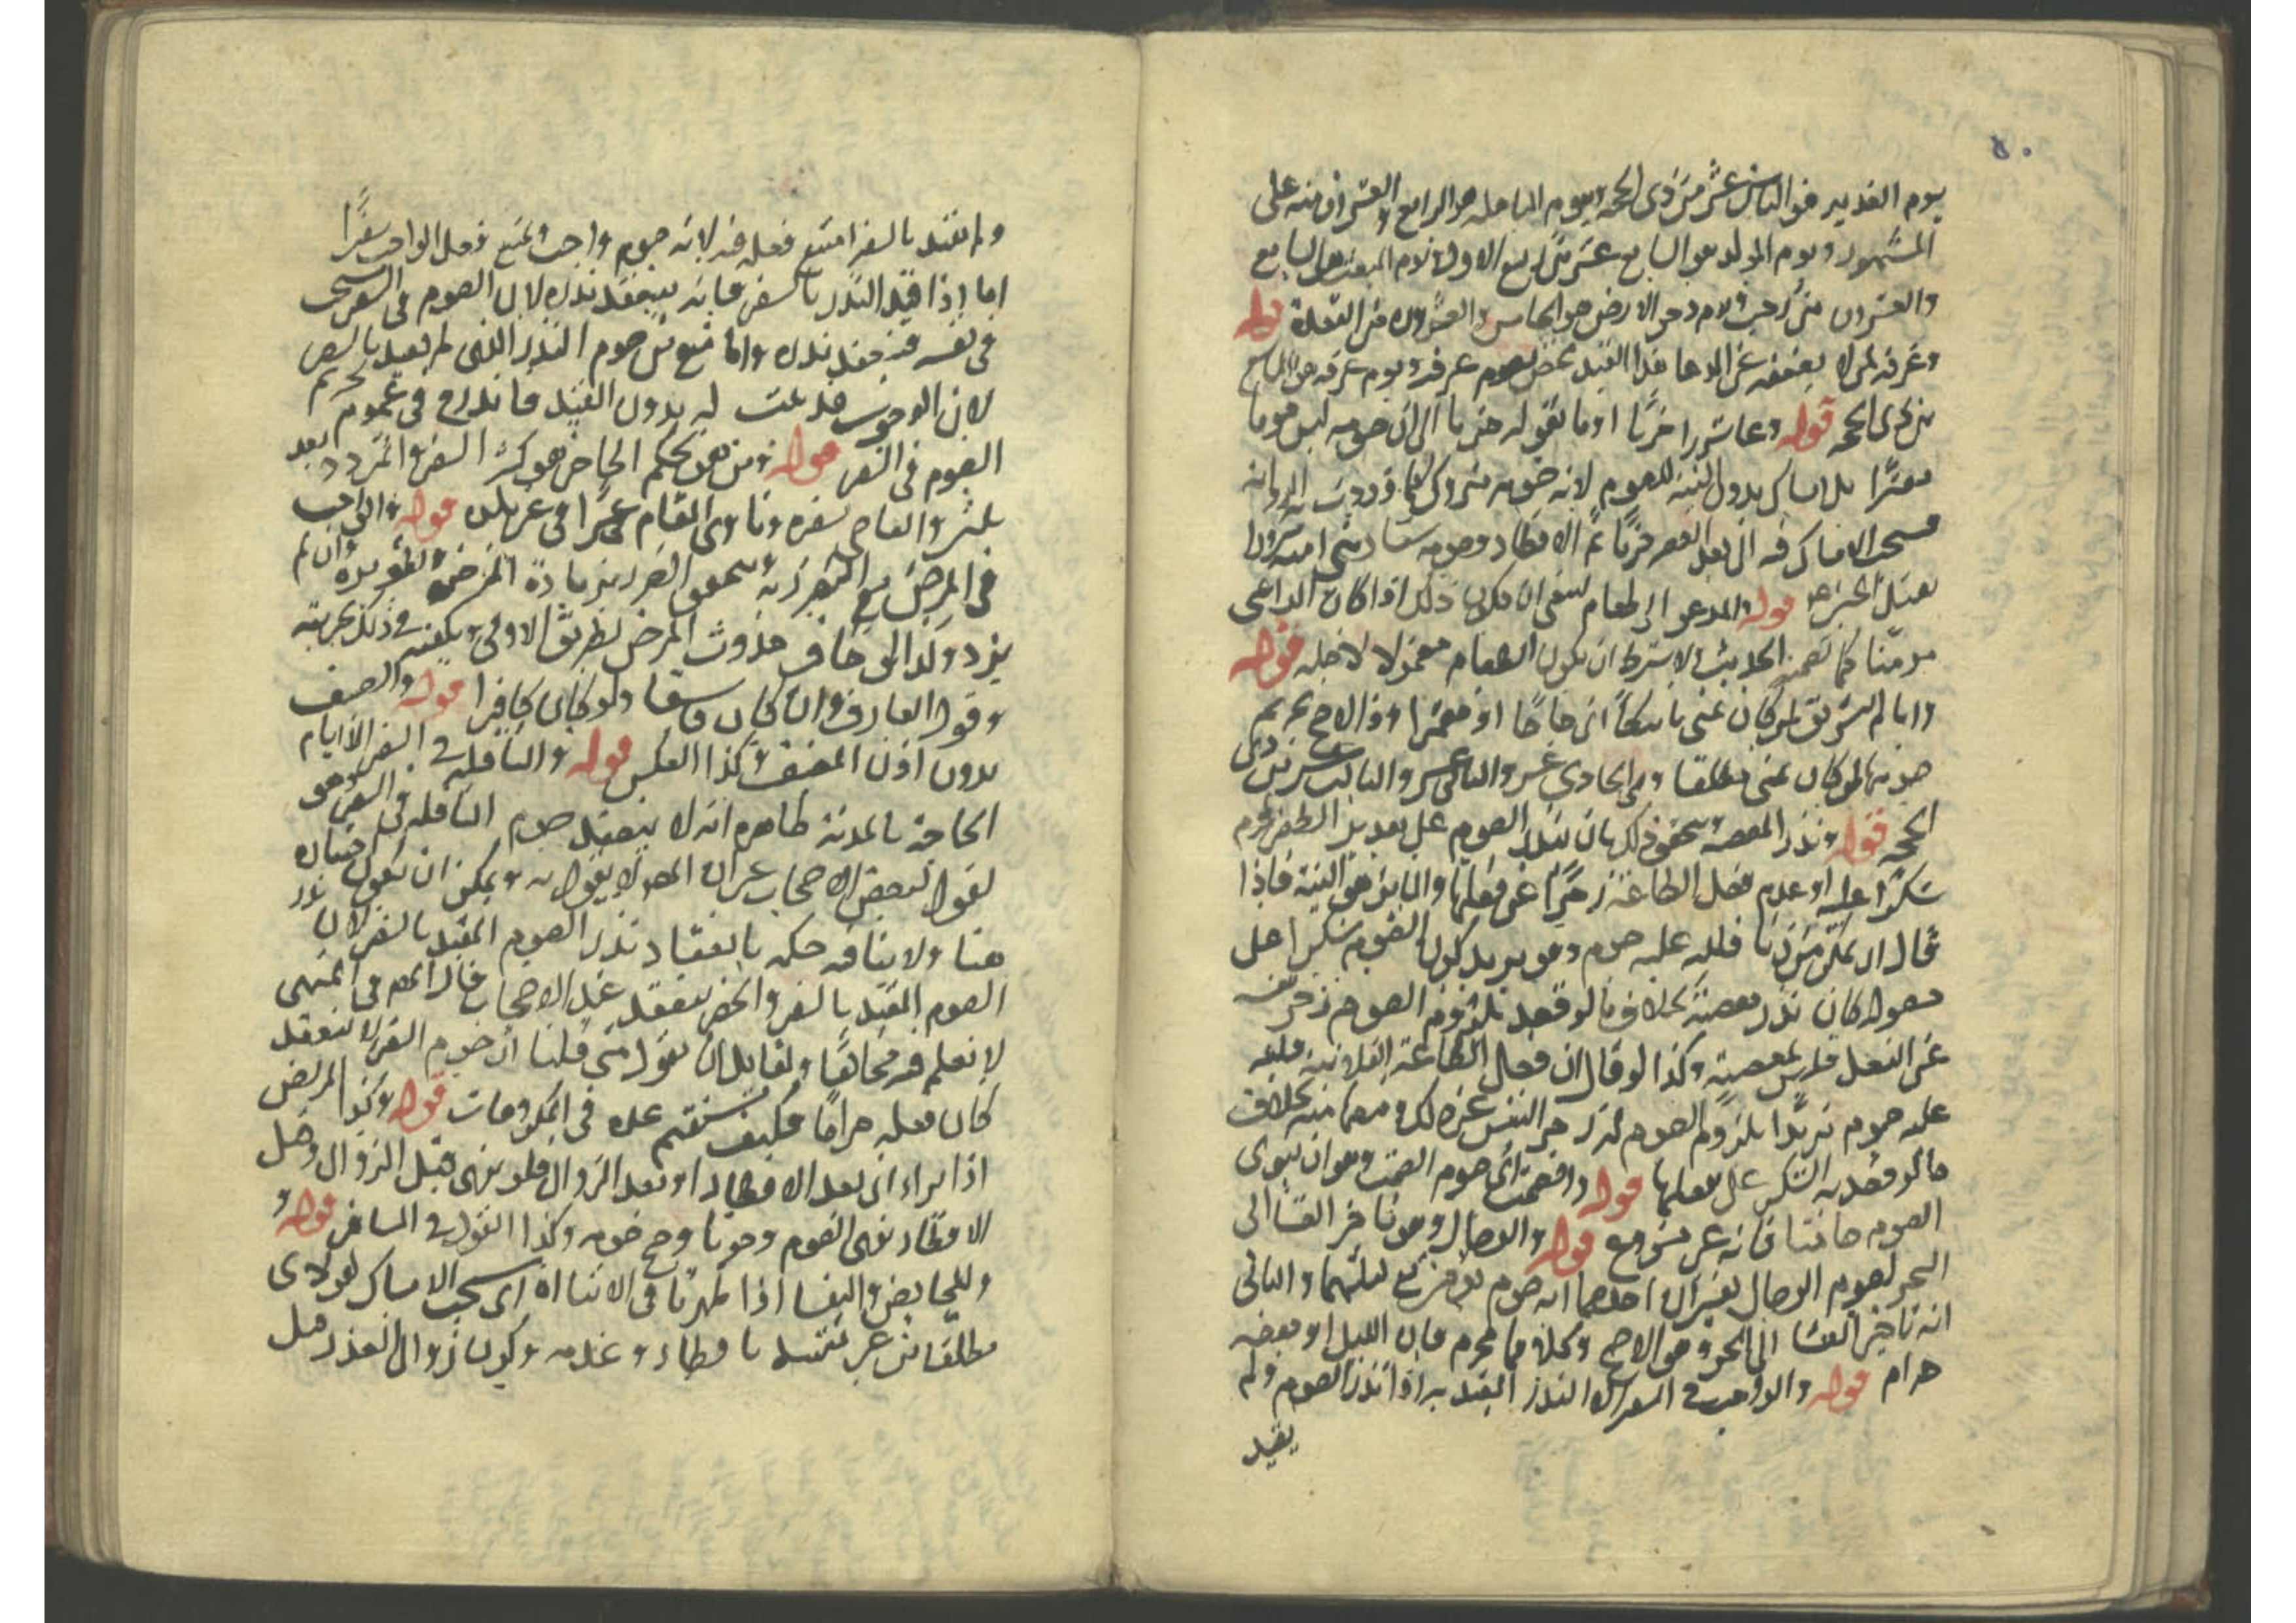 ٥٠
يوم الغدير هو الثامن عشر من ذي الحجة ويوم المباهلة هو الرابع والعشرون منه على
المشهور ويوم المولد هو السابع عشر من ربيع الاول ويوم المبعث هو السابع
والعشرون من رجب ويوم دحو الارض هو الخامس والعشرون من القعدة قوله
وعرفة لمن لا يضعفه عن الدعا هذا القيد مختص بصوم عرفة ويوم عرفة هو التاسع
من ذي الحجة قوله وعاشورا حزنا اوما بقوله حزنا الى ان صومه ليس صوما
معتبرا بل امساك بدون النية للصوم لانه صومه متروك كما وردت به الرواية
فيستحب الامساك فيه الى بعد العصر حزنا ثم الافطار وصومه متروك
قوله والمدعو الى طعام ينبغي ان يكون ذلك اذا كان الداعي
مومنا كما تضمنه الحديث ولا يشترط ان يكون الطعام معمولا لاجله قوله
وايام التشريق لمن كان بمنى ناسكا اي حاجا او معتمرا والاصح تحريم
صومها لمن كان بمنى مطلقا وهي الحادي عشر والثاني عشر والثالث عشر من ذي
الحجة قوله ونذر المعصية يتحقق ذلك بان ينذر الصوم على تقدير
شكرا عليه او عدم فعل الطاعة زجرا عن فعلها والمايز هو النية فاذا
قال ان تمكن من زنا فلله عليه صوم وهو يريد بكون الصوم شكرا على
حصوله كان نذر معصية بخلاف ما لو قصد بلزوم الصوم زجر نفسه
عن الفعل فليس بمعصية وكذا لو قال ان فعل الطاعة الفلانية فلله
عليه صوم يريد بلزوم الصوم له زجر النفس عن ذلك بخلاف
ما لو قصد به الشكر على فعلها قوله والصمت اي صوم الصمت وهو ان ينوي
الصوم صامتا فانه غير مشروع قوله والوصال وهو تاخير العشا الى
السحر لصوم الوصال تفسيران احدهما انه صوم يومين مع ليلتهما والثاني
انه تاخير العشا الى السحر وهو الاصح وكلاهما محرم فان الليل او بعضه
حرام قوله والواجب في السفر الا النذر المقيد به اذا نذر الصوم ولم
يقيد
ولم يقيد بالسفر امتنع فعله فيه لانه صوم واجب ويمتنع فعل الواجب سفرا
اما اذا قيد النذر بالسفر فانه ينعقد نذره لان الصوم في السفر مستحب
في نفسه فينعقد نذره وانما منع من صوم النذر الذي لم يقيد بالسفر
لان الوجوب قد ثبت له بدون القيد فاندرج في عموم تحريم
الصوم في السفر قوله ومن هو بحكم الحاضر هو كثير السفر والمتردد بعد
ثلثين والعاصي بسفره وناوي المقام عشرا في غير بلده قوله والواجب
في المرض مع التضرر به يتحقق الضرر بزيادة المرض وتطويره وان لم
يزد ولو خاف حدوث المرض بطريق الاولى ويكفي في ذلك تجربته
وقول العارف وان كان فاسقا ولو كان كافرا قوله والضيف
بدون اذن المضيف وكذا العكس قوله والنافلة في السفر الا ايام
الحاجة بالمدينة ظاهره انه لا ينعقد صوم النافلة في السفر وهو
لقول لبعض الاصحاب غير ان المص لا يقول به ويمكن ان يكون مختاره
هنا ولا ينافيه حكمه بانعقاد نذر الصوم المقيد بالسفر لان نذر
الصوم المقيد بالسفر والحضر ينعقد عند الاصحاب قال المص في المنتهى
لا نعلم فيه مخالفا ولقايل ان يقول متى قلنا ان صوم السفر لا ينعقد
كان فعله حراما فكيف يستقيم عده في المكروهات قوله وكذا المريض
اذا براء اي بعد الافطار او بعد الزوال فلو برئ قبل الزوال وقبل
الافطار نوى الصوم وجوبا وصح صومه وكذا القول في المسافر قوله و
للحايض والنفسا اذا طهرتا في الاثناء اي يستحب الامساك لهؤلاء
مطلقا من غير تقييد بافطار وعدمه وكون زوال العذر قبل